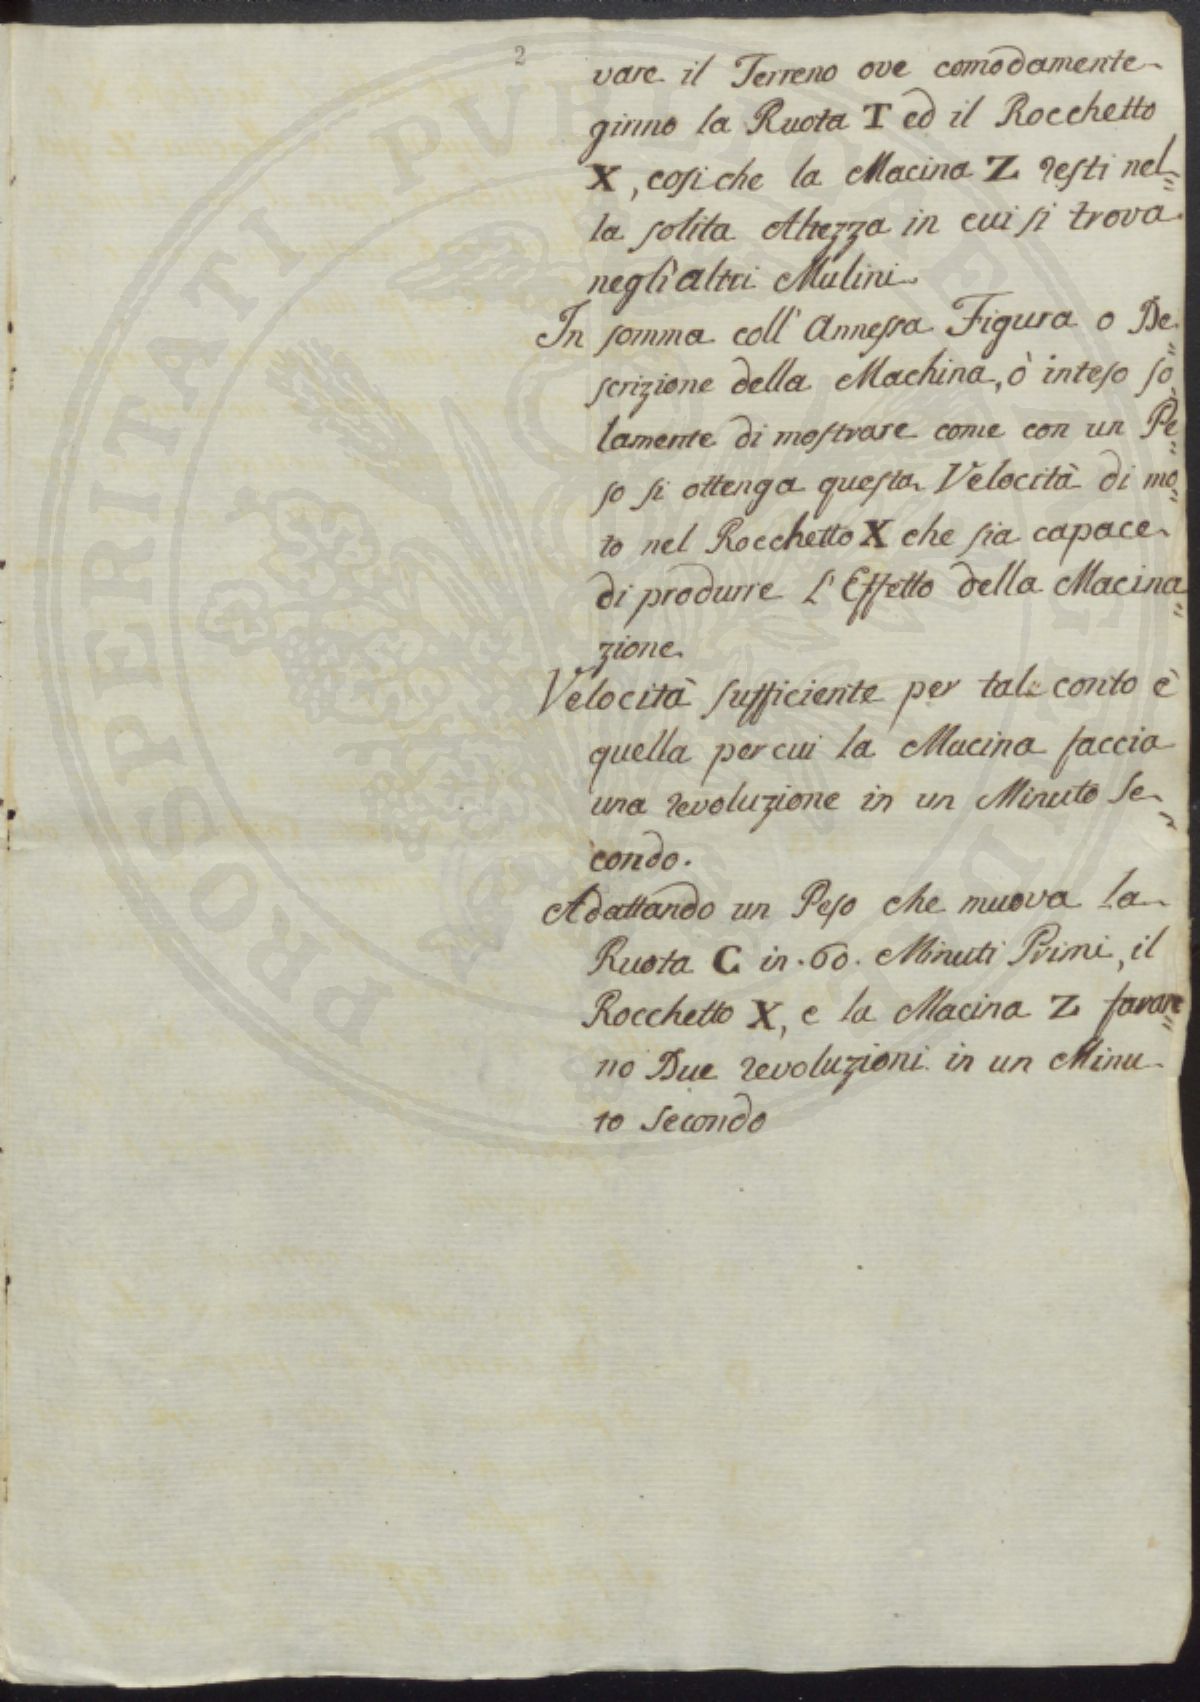 2
vare il Terreno ove comodamente
girino la Ruota T ed il Rocchetto
X, cosiche la Macina Z resti nel=
la solita Altezza in cui si trova
negli altri Mulini.
In somma coll' Annessa Figura o De=
scrizione della Machina, ò inteso so=
lamente di mostrare come con un Pe=
so si ottenga questa Velocità di mo=
to nel Rocchetto X che sia capace
di produrre l'Effetto della Macina=
zione.
Velocità sufficiente per tal conto è
quella per cui la Macina faccia
una revoluzione in un Minuto Se=
condo.
Adattando un Peso che muova la
Ruota C in .60. Minuti Primi, il
Rocchetto X, e la Macina Z faran=
no Due revoluzioni in un Minu=
to Secondo
PROSPERITATI PVBLICAE